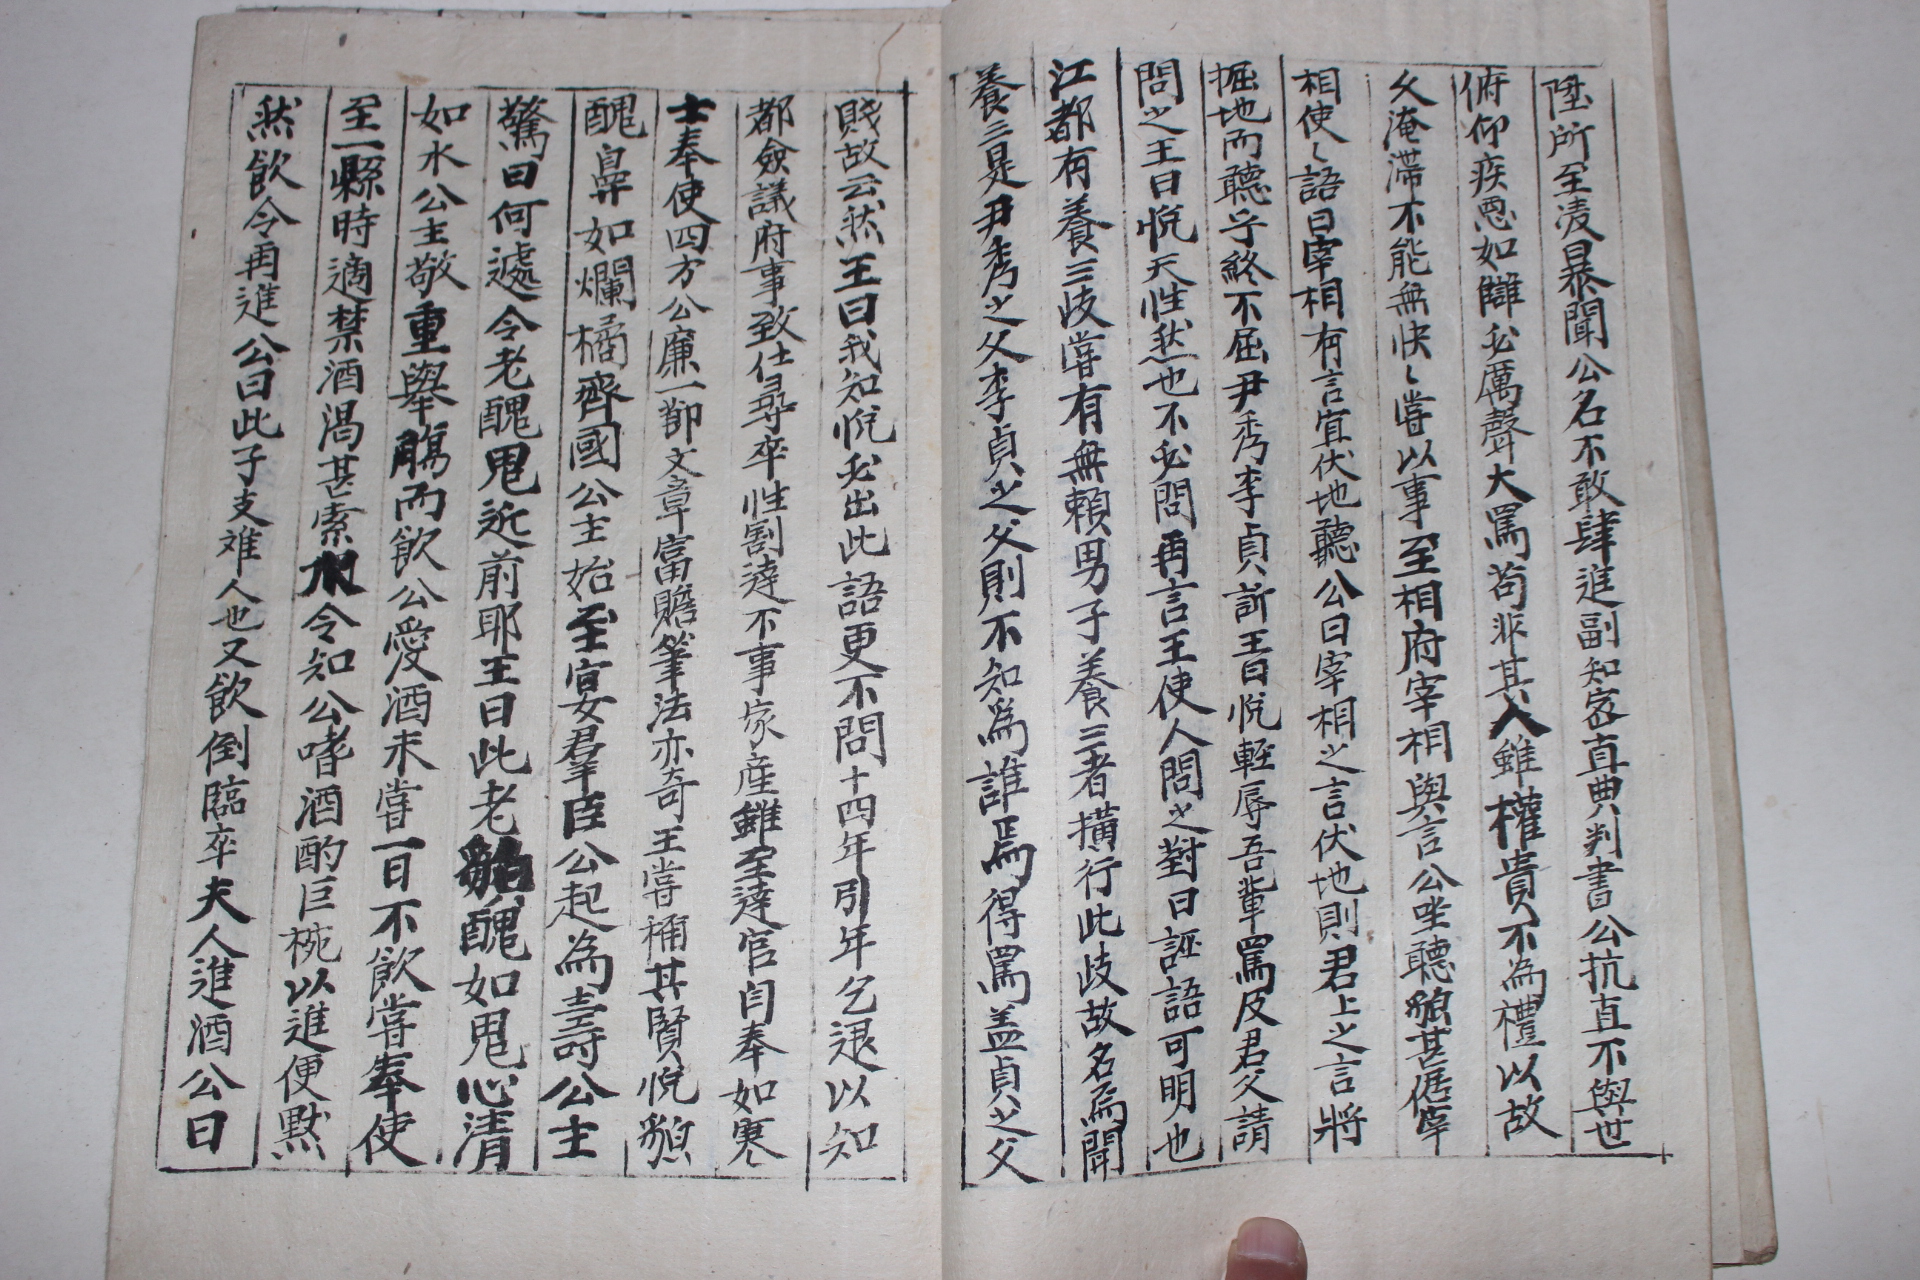 陞所至凌暴聞公名不敢肆進副知密直典判書公抗直不與世
俯仰疾惡如讎必厲聲大罵苟非其人雖權貴不為禮以故
久淹滯不能無快〻嘗以事至相府宰相與言公坐聽貌甚倨宰
相使〻語曰宰相有言宜伏地聽公曰宰相之言伏地則君上之言將
掘地而聽乎終不屈尹秀李貞訴王曰悅輕辱吾輩罵及君父請
問之王曰悅天性然也不必問再言王使人問之對曰誣語可明也
江都有養三歧嘗有無賴男子養三者橫行此歧故名焉聞
養三是尹秀之父李貞之父則不知為誰焉得罵盖貞之父
賤故云然王曰我知悅必出此語更不問十四年引年乞退以知
都僉議府事致仕尋卒性割達不事家産雖至達官自奉如寒
士奉使四方公廉一節文章富贍筆法亦奇王嘗稱其賢悅貌
醜鼻如爛橘齊國公主始至宴羣臣公起為壽公主
驚曰何遽令老醜鬼近前耶王曰此老貌醜如鬼心清
如水公主敬重擧觴而飮公愛酒未嘗一日不飮嘗奉使
至一縣時適禁酒渴甚索水令知公嗜酒酌巨椀以進便默
然飮令再進公曰此子支难人也又飮倒臨卒夫人進酒公曰